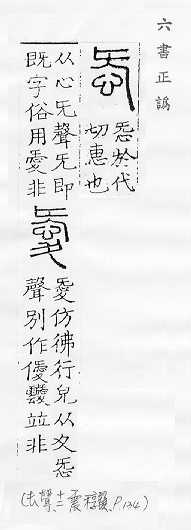 六書正譌
㤅
㤅於代
切惠也
从心旡聲旡即
既字俗用愛非
愛
愛仿彿行皃从夊㤅
聲別作僾靉竝非
(去聲 P.134)